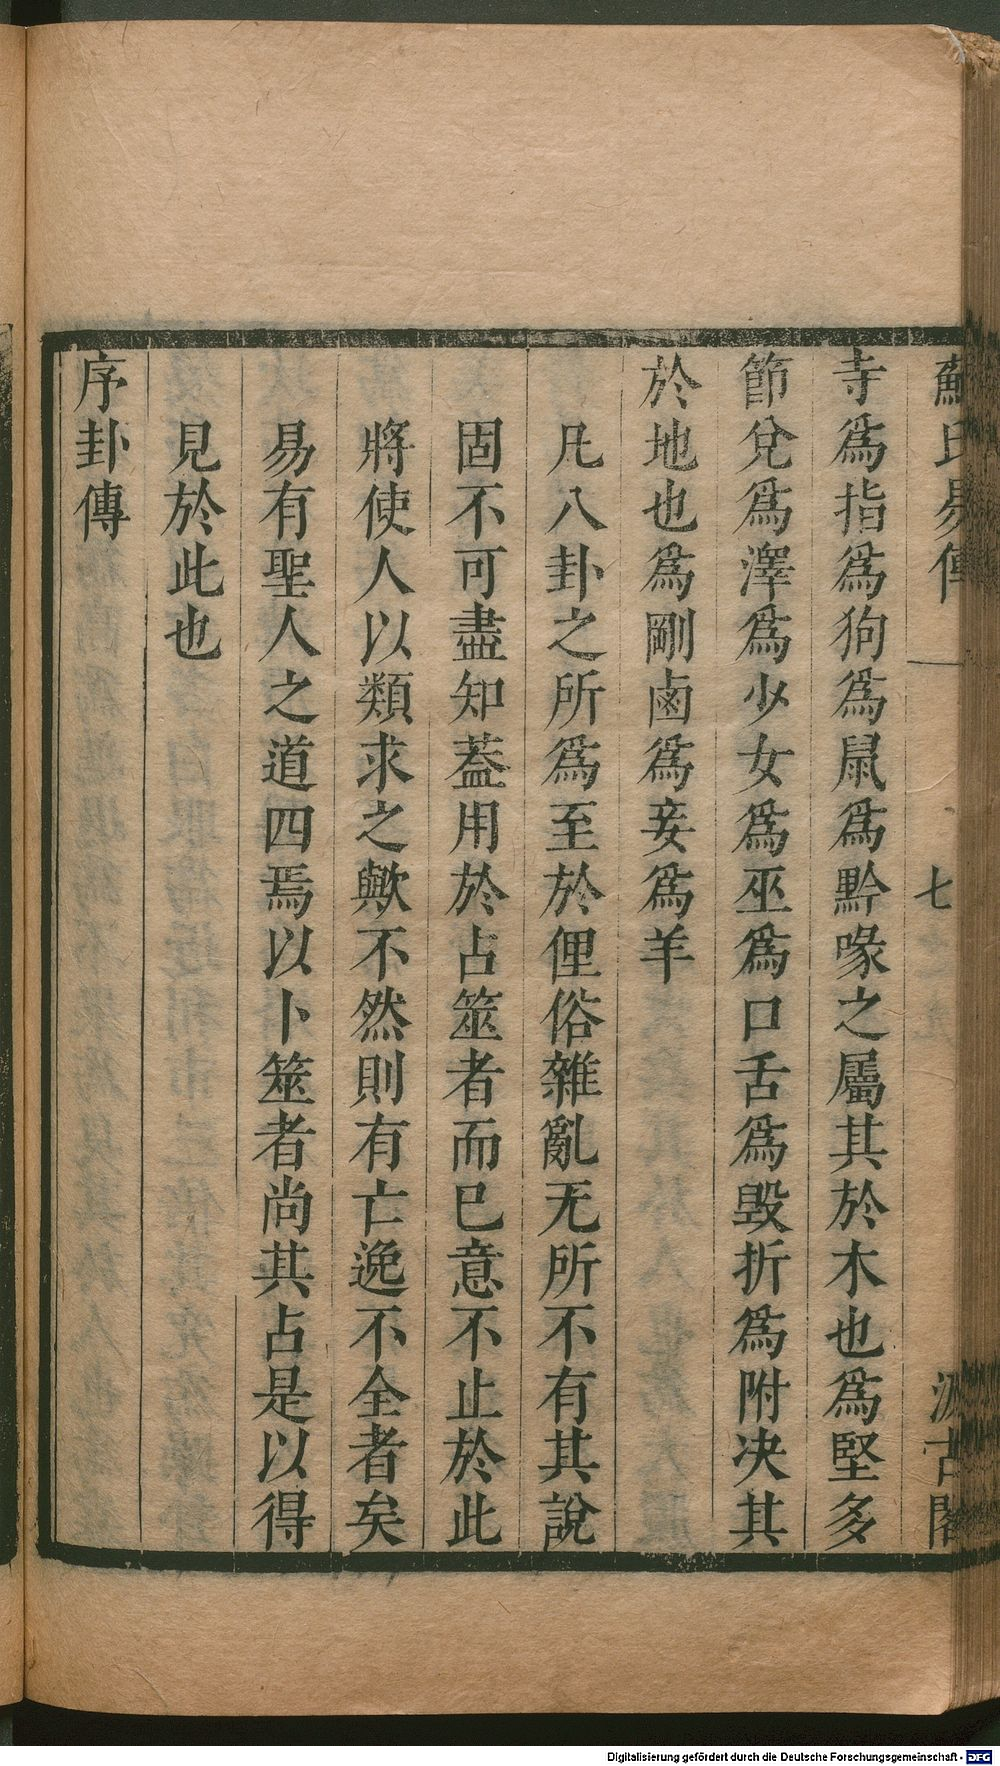 蘇氏易傳 七 汲古閣
寺爲指爲狗爲鼠爲黔喙之屬其於木也爲堅多
節兌爲澤爲少女爲巫爲口舌爲毀折爲附决其
於地也爲剛鹵爲妾爲羊
凡八卦之所爲至於俚俗雜亂无所不有其說
固不可盡知葢用於占筮者而已意不止於此
將使人以類求之歟不然則有亡逸不全者矣
易有聖人之道四焉以卜筮者尚其占是以得
見於此也
序卦傳
Digitalisierung gefördert durch die Deutsche Forschungsgemeinschaft - DFG